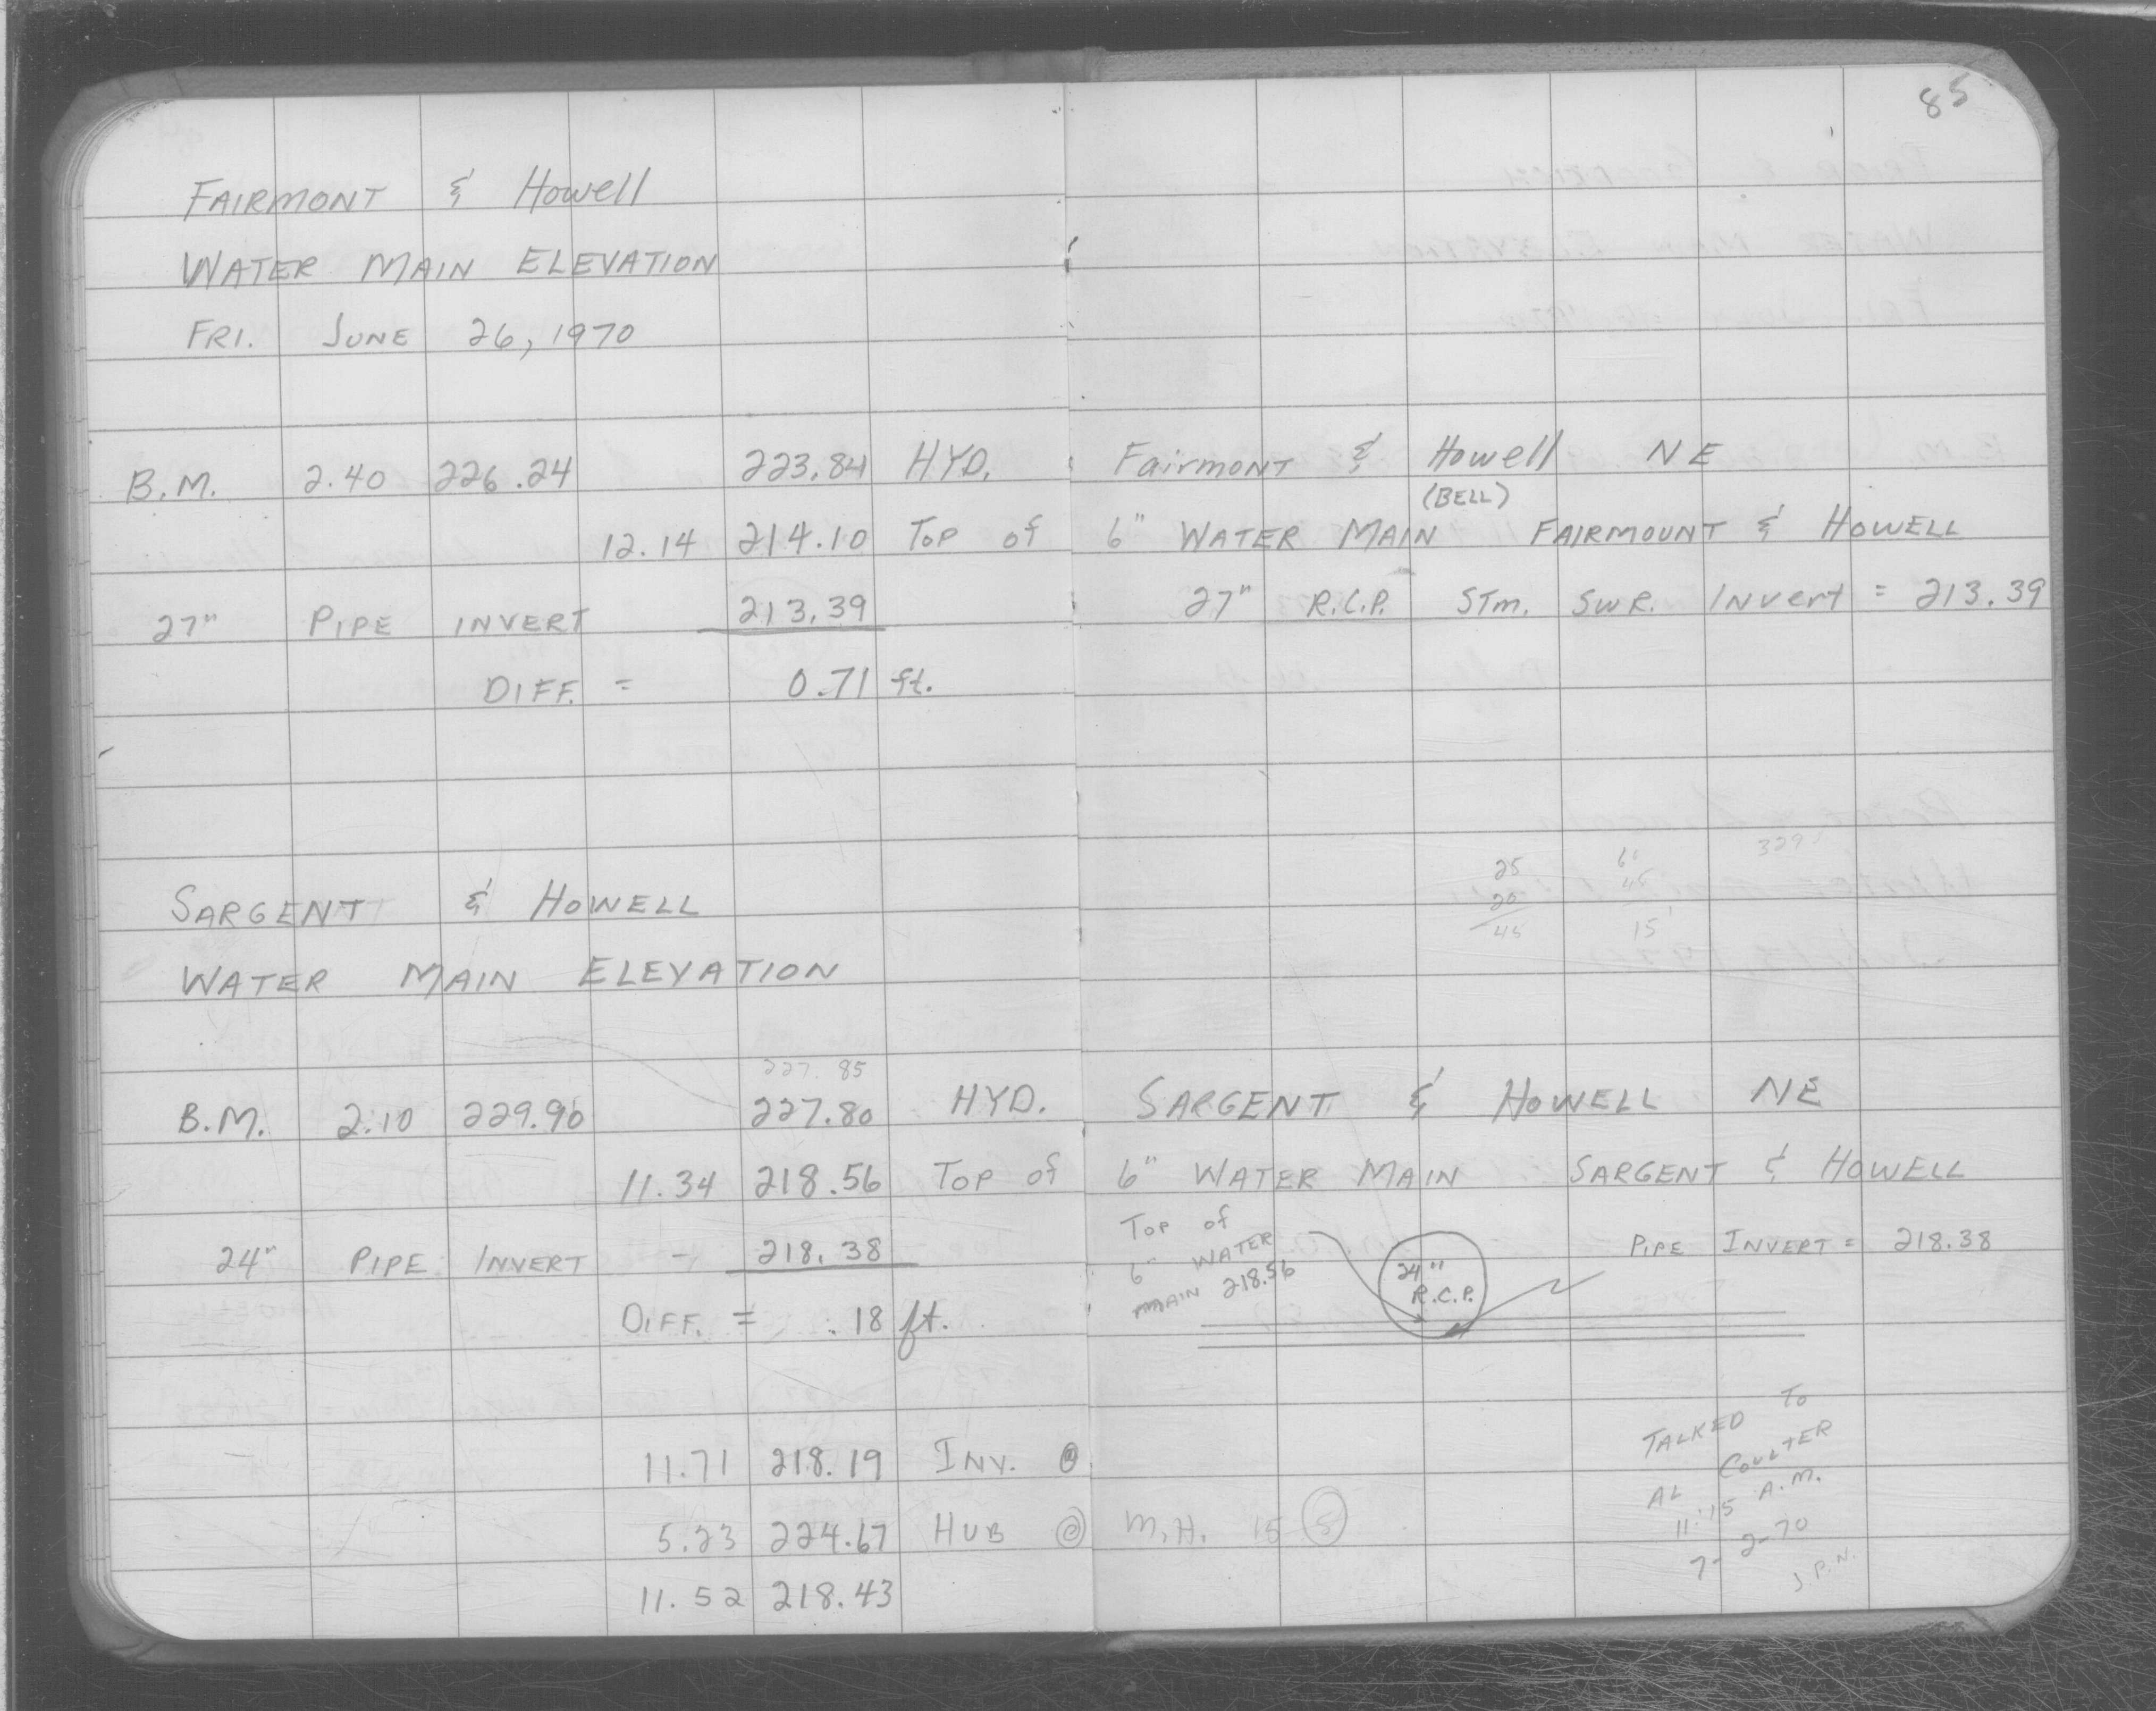 85
FAIRMONT & Howell
WATER MAIN ELEVATION
FRI. JUNE 26, 1970
B.M. 2.40 226.24 223.84 HYD. Fairmont & Howell NE
(BELL)
12.14 214.10 TOP of 6" WATER MAIN FAIRMOUNT & HOWELL
27" PIPE INVERT 213.39 27" R.C.P. STm. SWR. Invert = 213.39
DIFF. = 0.71 ft.
25
20
45
60
45
15'
329
SARGENT & HOWELL
WATER MAIN ELEVATION
227.85
B.M. 2.10 229.90 227.80 HYD. SARGENT & HOWELL NE
11.34 218.56 TOP of 6" WATER MAIN SARGENT & HOWELL
24" PIPE INVERT - 218.38
DIFF. = .18 ft.
TOP of
6" WATER
MAIN 218.56
24"
R.C.P.
PIPE INVERT = 218.38
11.71 218.19 INV. @
5.23 224.67 HUB @ M.H. 15 S
11.52 218.43
TALKED TO
AL COULTER
11:15 A.M.
7-2-70
J.P.N.